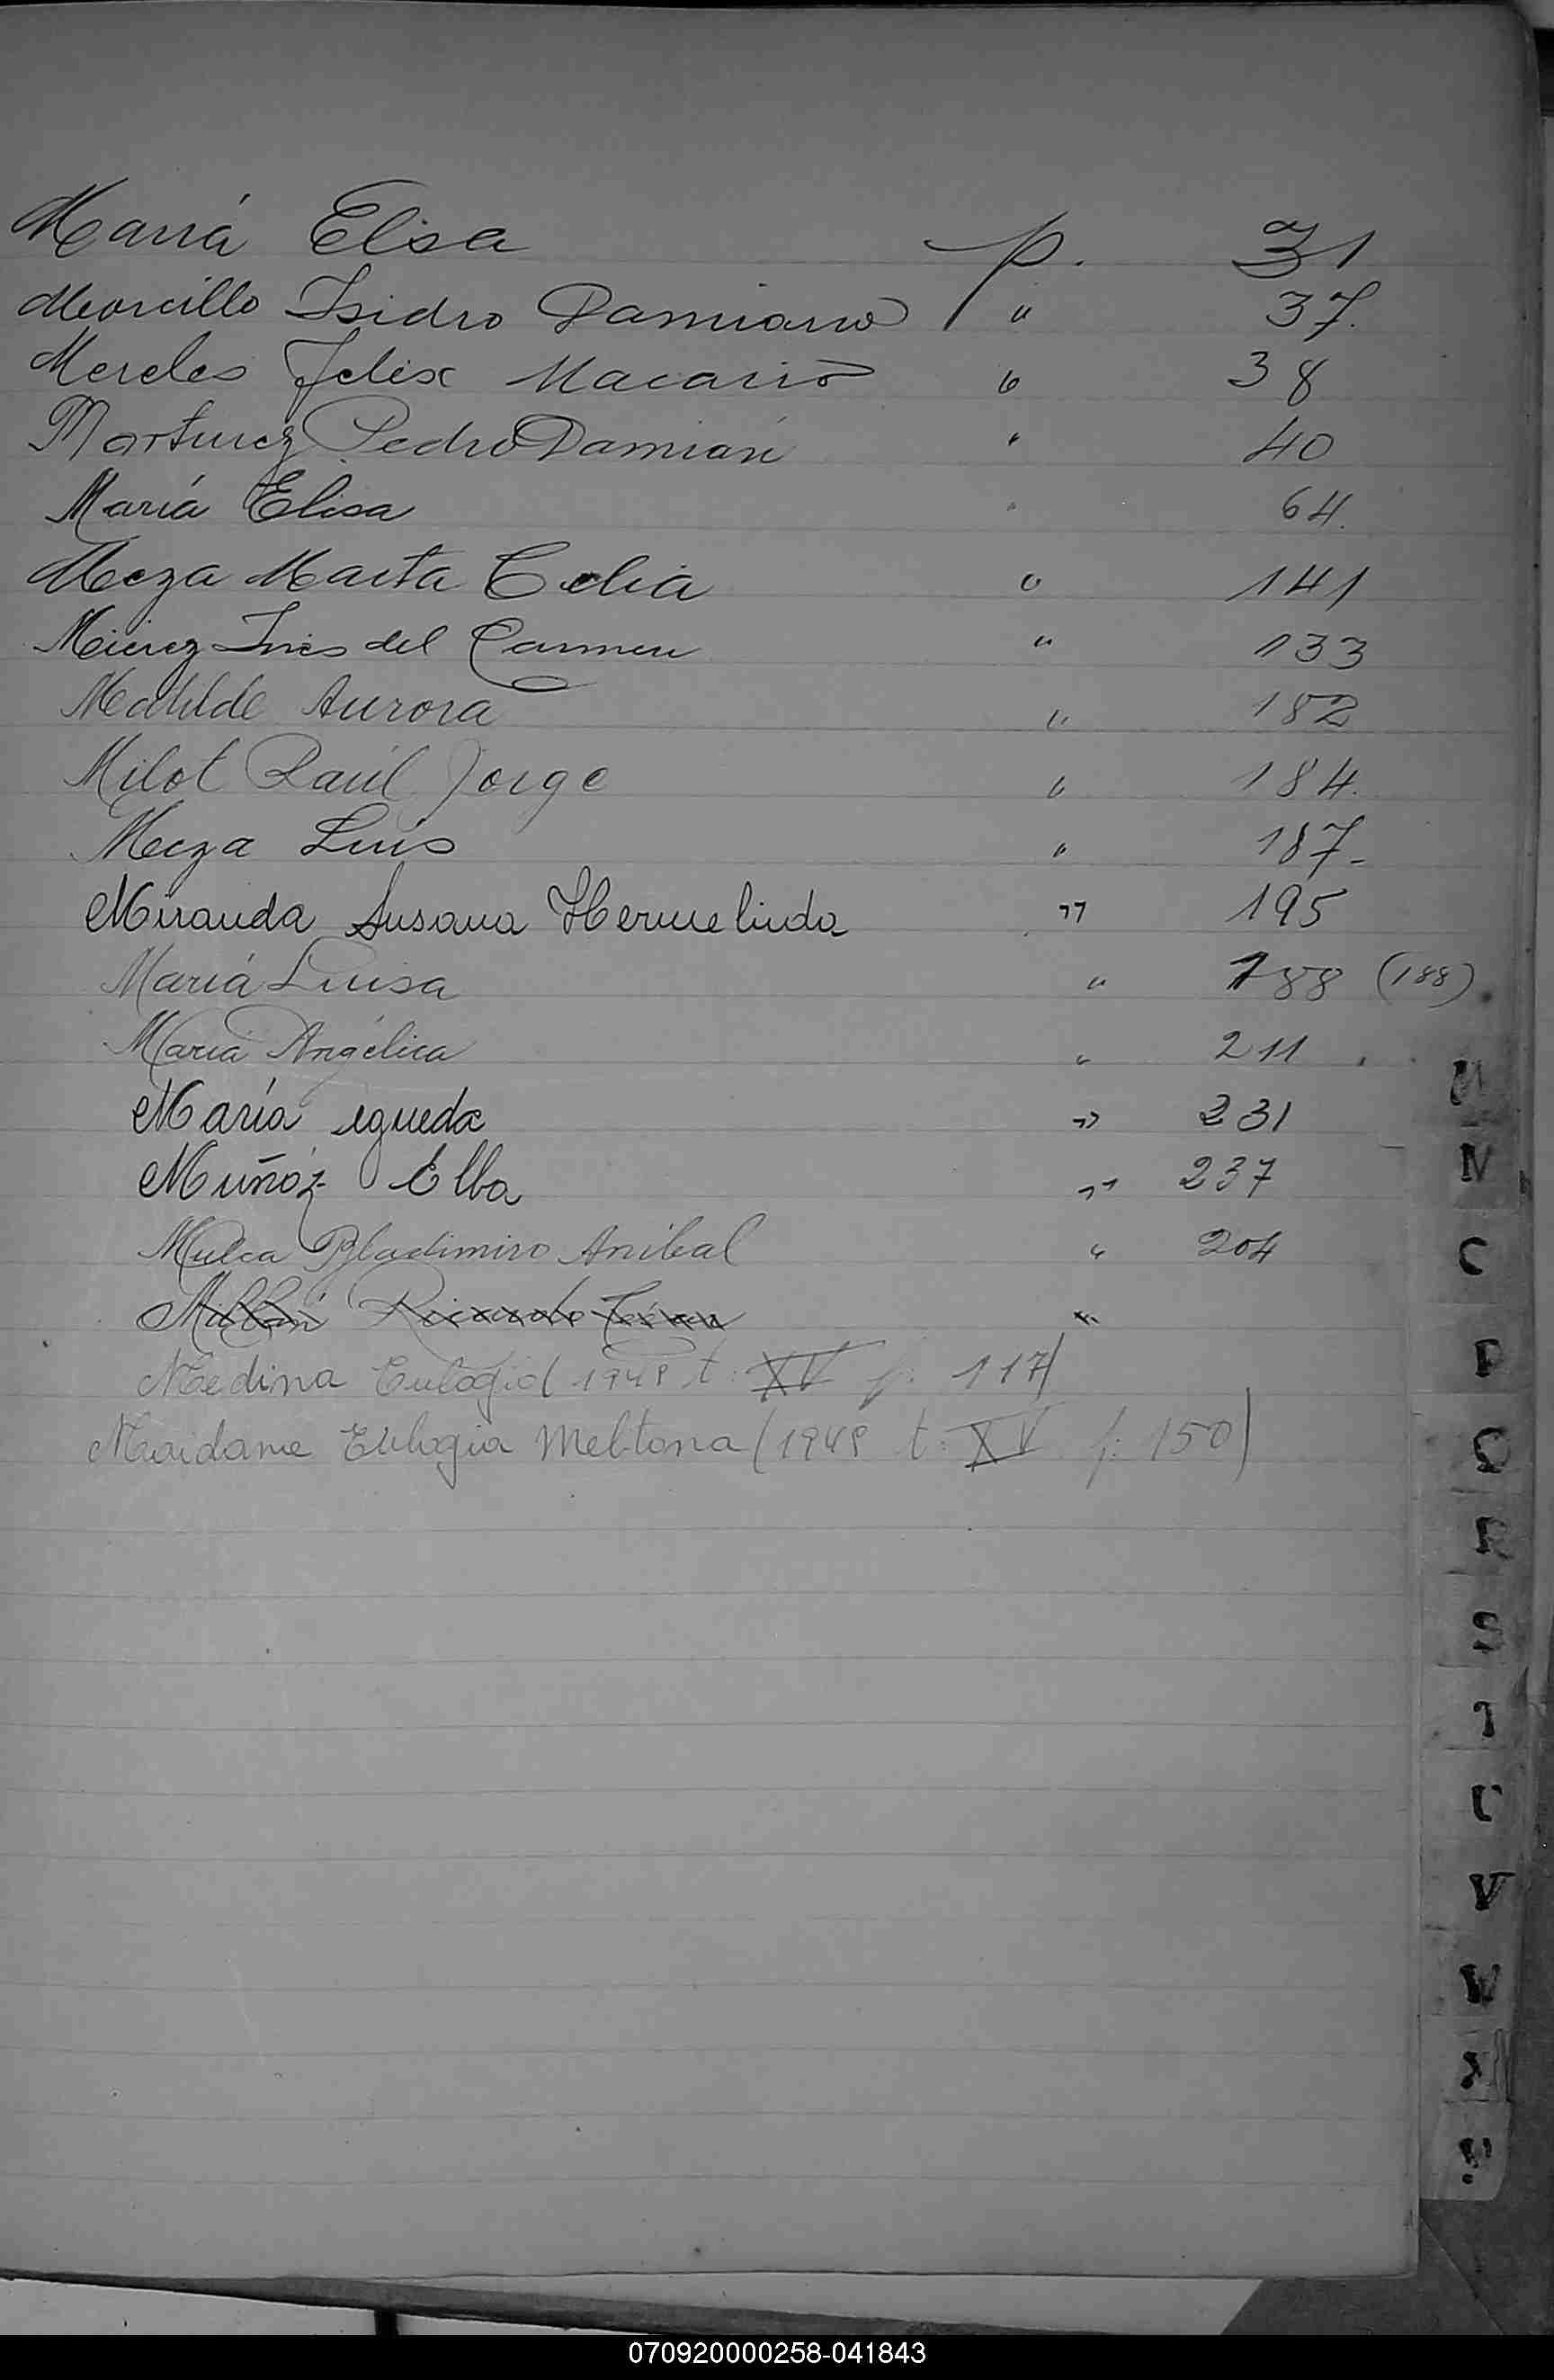 María Elisa p. 31
Morcillo Isidro Damiano " 37.
Mereles Felix Macario " 38
Martinez Pedro Damian " 40
María Elisa " 64.
Meza Marta Celia " 141
Mierez Inés del Carmen " 133
Matilde Aurora " 182
Milot Raúl Jorge " 184.
Meza Luis " 187-
Miranda Susana Hermelinda " 195
María Luisa " 188 (188)
María Angélica " 211
María Egueda " 231
Muñóz Elba " 237
Mulca Bladimiro Anibal " 204
Millan Ricardo "
Medina Eulogio (1949 t: XV f: 117)
Maidame Eulogia Meltona (1949 t: XV f: 150)
M
N
O
P
Q
R
S
T
U
V
W
070920000258-041843